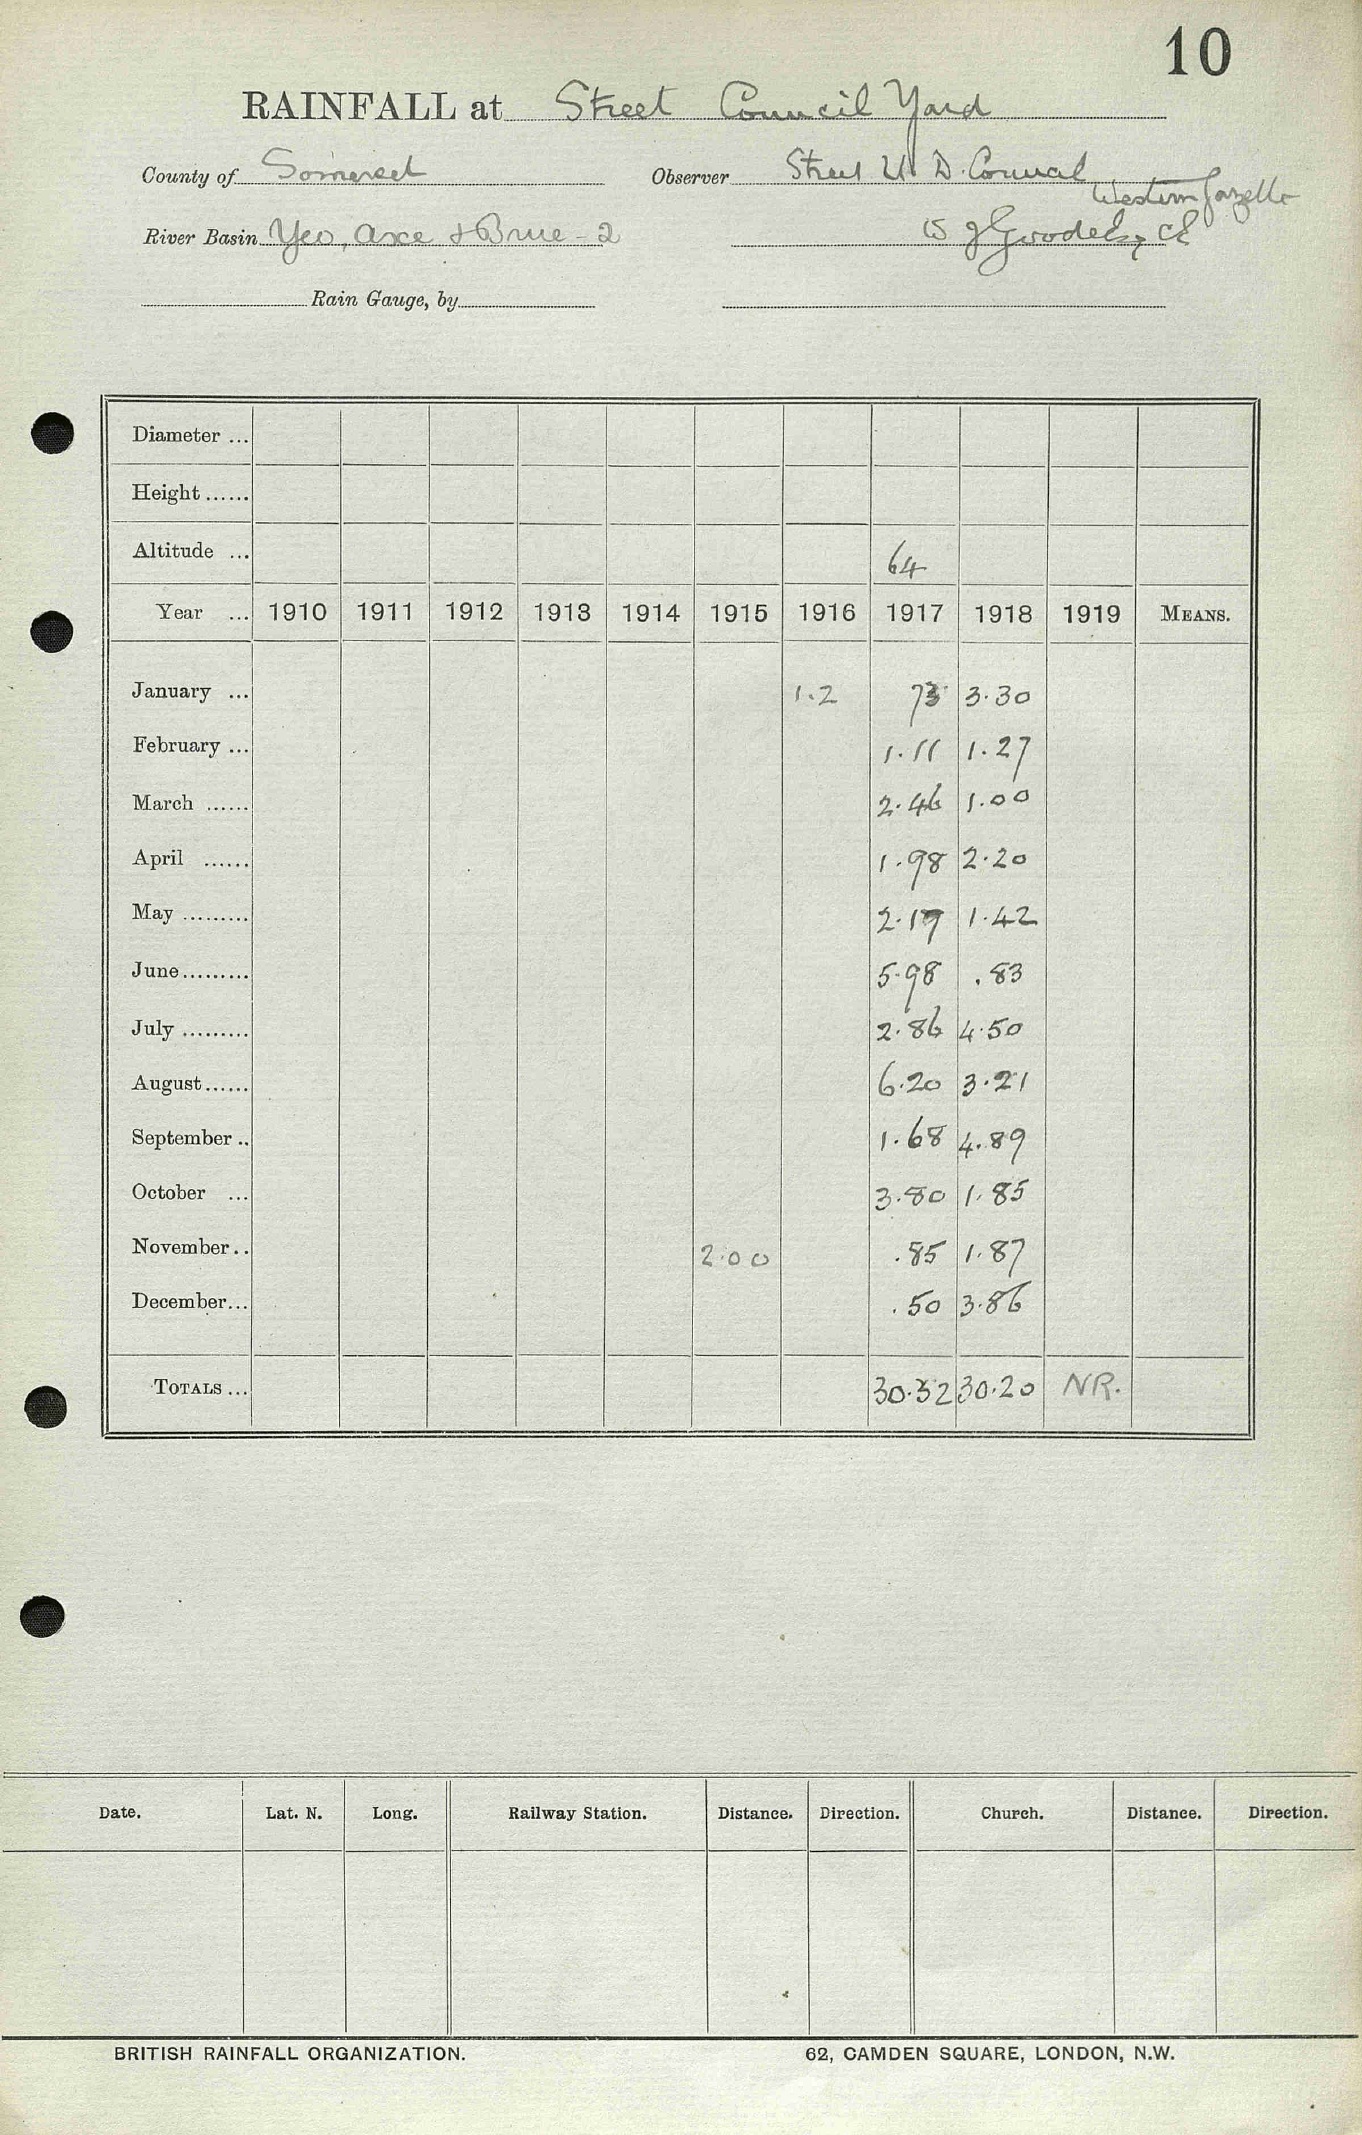 10
RAINFALL at Street Council Yard
County of Somerset Observer Street U D. Council
Western Gazette
River Basin Yeo, Axe & Brue - 2
Rain Gauge, by
Diameter ...
Height ......
Altitude ... 64
Year ... 1910 1911 1912 1913 1914 1915 1916 1917 1918 1919 MEANS.
January ... 1.2 73 3.30
February ... 1.11 1.27
March ...... 2.46 1.00
April ...... 1.98 2.20
May ......... 2.17 1.42
June ......... 5.98 .83
July ......... 2.86 4.50
August ...... 6.20 3.21
September .. 1.68 4.89
October ... 3.80 1.85
November .. 2.00 .85 1.87
December ... .50 3.86
TOTALS ... 30.32 30.20 NR.
Date. Lat. N. Long. Railway Station. Distance. Direction. Church. Distance. Direction.
BRITISH RAINFALL ORGANIZATION. 62, CAMDEN SQUARE, LONDON, N.W.